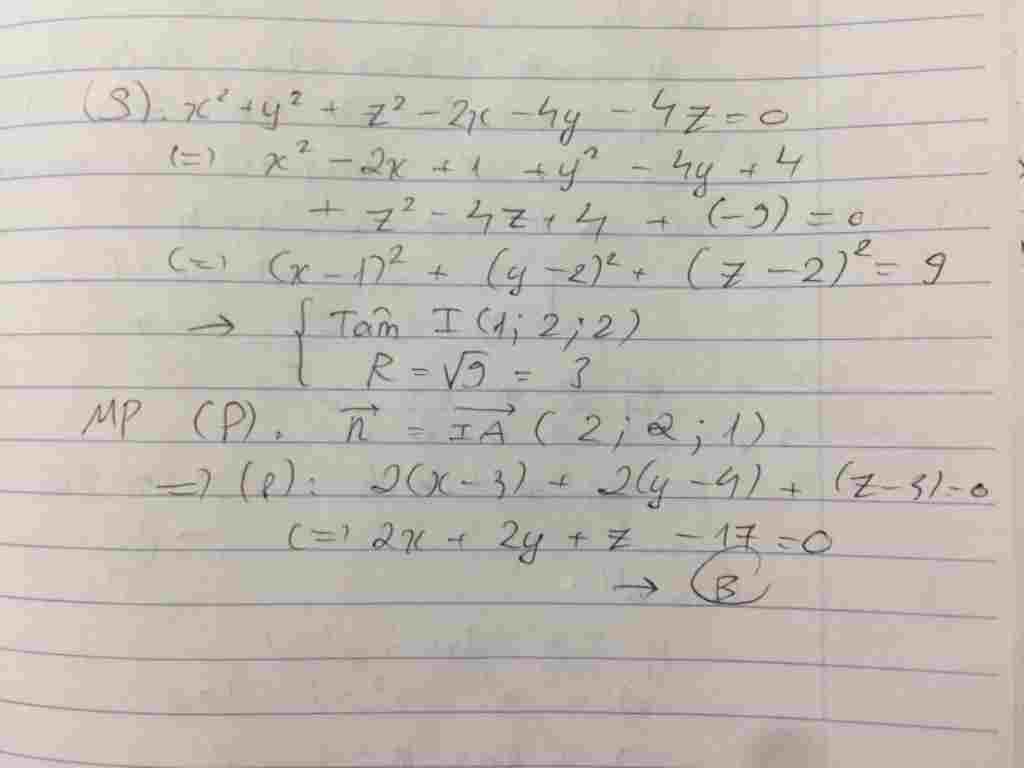 (S): x² + y² + z² - 2x - 4y - 4z = 0
(=) x² - 2x + 1 + y² - 4y + 4
+ z² - 4z + 4 + (-9) = 0
(=) (x - 1)² + (y - 2)² + (z - 2)² = 9
→ { Tâm I (1; 2; 2)
R = √9 = 3
MP (P). n⃗ = IA⃗ (2; 2; 1)
=> (P): 2(x - 3) + 2(y - 4) + (z - 3) = 0
(=) 2x + 2y + z - 17 = 0
→ B